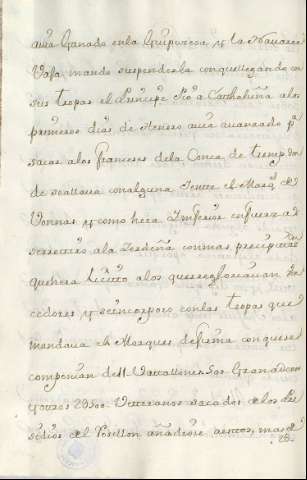 auia Ganado enla Guipuzcoa, y la Nauarra
Vaja mando suspenderla con que llegando con
sus tropas el Principe Pio a Cathaluña a los
primeros dias de Henero auia auanzado pª
sacar alos franceses dela Conca de tremp don
de se allaua con alguna Jente el Marqs de
Vonnas y como hera Inferior en fuerzas
se retiro ala Zerdaña con mas precipitazon
que hera licito a los que se gloreauan
cedores y se incorporo con las tropas que
mandaua el Marques de firma con que se
componian de 11 Vatallones 500 Granaderos
y otros 2500 Veteranos sacados de los Pre
sidios del Rosellon añadiose a estos, mas de